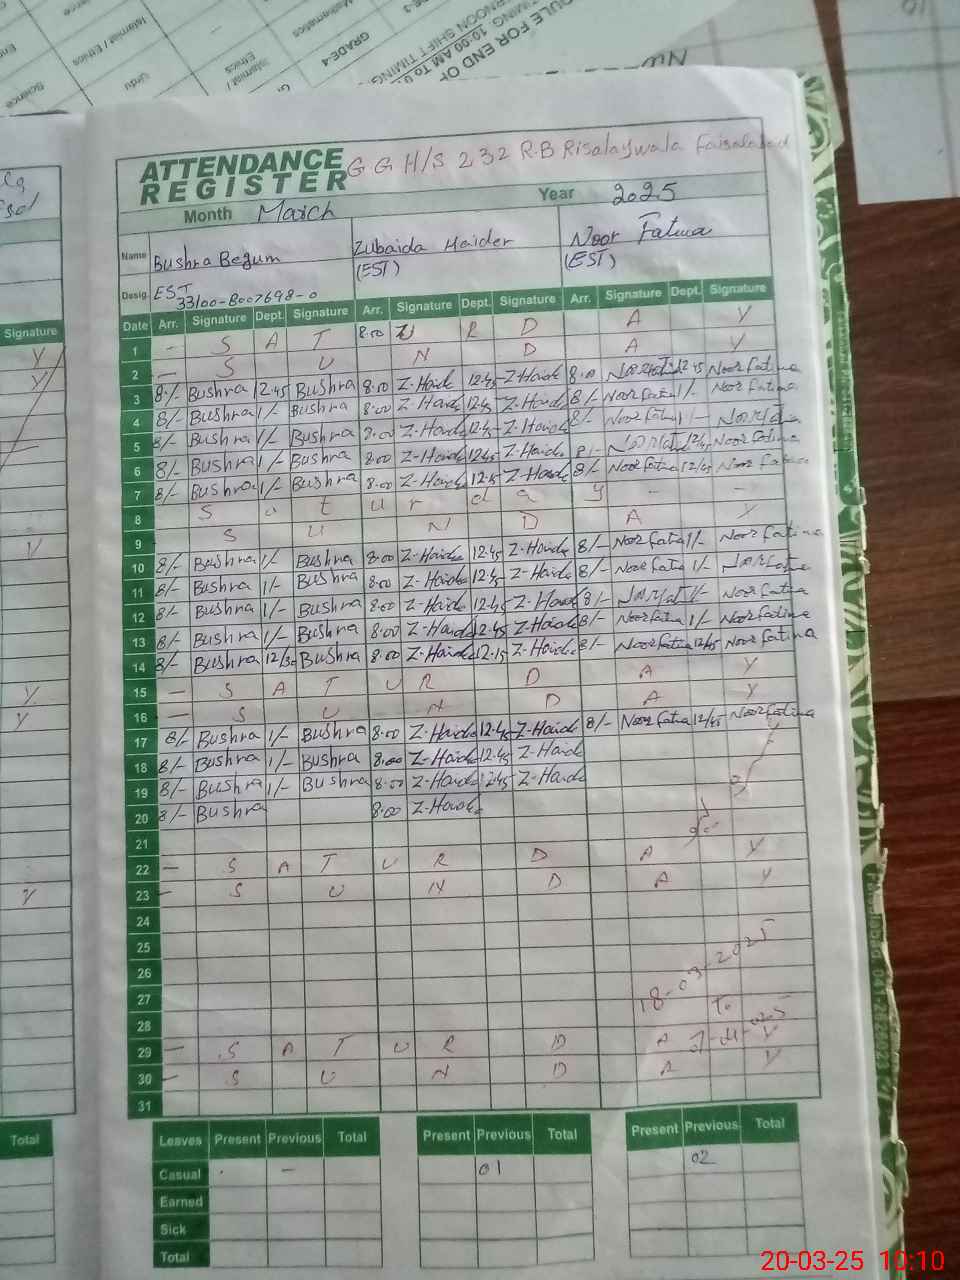 FOR END OF
TIMING: 10:00 AM To
NOON SHIFT TIMING
GRADE-4
Mathematics
Islamiat / Ethics
Islamiat /
Ethics
Urdu
Science
ATTENDANCE
REGISTER
G G H/S 232 R.B Risalaywala Faisalabad
Month March Year 2025
Name Bushra Begum Zubaida Haider Noor Fatima
(EST) (EST)
Desig. EST
33100-8007698-0
Date Arr. Signature Dept. Signature Arr. Signature Dept. Signature Arr. Signature Dept. Signature
1 - S A T 8.00 U R D A Y
2 - S U N D A Y
3 8/- Bushra 12.45 Bushra 8.00 Z-Haide 12.45 Z-Haide 8.00 Noor Fatima 12.45 Noor Fatima
4 8/- Bushra 1/- Bushra 8.00 Z-Haide 12.45 Z-Haide 8/- Noor Fatima 1/- Noor Fatima
5 8/- Bushra 1/- Bushra 8.00 Z-Haide 12.45 Z-Haide 8/- Noor Fatima 1/- Noor Fatima
6 8/- Bushra 1/- Bushra 8.00 Z-Haide 12.45 Z-Haide 8/- Noor Fatima 12/45 Noor Fatima
7 8/- Bushra 1/- Bushra 8.00 Z-Haide 12.15 Z-Haide 8/- Noor Fatima 12/45 Noor Fatima
8 S a t u r d a y - -
9 S U N D A Y
10 8/- Bushra 1/- Bushra 8.00 Z-Haide 12.45 Z-Haide 8/- Noor Fatima 1/- Noor Fatima
11 8/- Bushra 1/- Bushra 8.00 Z-Haide 12.45 Z-Haide 8/- Noor Fatima 1/- Noor Fatima
12 8/- Bushra 1/- Bushra 8.00 Z-Haide 12.45 Z-Haide 8/- Noor Fatima 1/- Noor Fatima
13 8/- Bushra 1/- Bushra 8.00 Z-Haide 12.45 Z-Haide 8/- Noor Fatima 1/- Noor Fatima
14 8/- Bushra 12/30 Bushra 8.00 Z-Haide 12.15 Z-Haide 8/- Noor Fatima 12/45 Noor Fatima
15 - S A T U R D A Y
16 - S U N D A Y
17 8/- Bushra 1/- Bushra 8.00 Z-Haide 12.45 Z-Haide 8/- Noor Fatima 12/45 Noor Fatima
18 8/- Bushra 1/- Bushra 8.00 Z-Haide 12.45 Z-Haide
19 8/- Bushra 1/- Bushra 8.00 Z-Haide 12.45 Z-Haide
20 8/- Bushra 8.00 Z-Haide
21
22 - S A T U R D A Y
23 - S U N D A Y
24
25
26
27
28
18-03-2025
To
29 - S A T U R D A Y
30 - S U N D A Y
31
Leaves Present Previous Total Present Previous Total Present Previous Total
Casual - 01 02
Earned
Sick
Total
Signature
Y
Y
Y
Y
Y
Y
Total
20-03-25 10:10